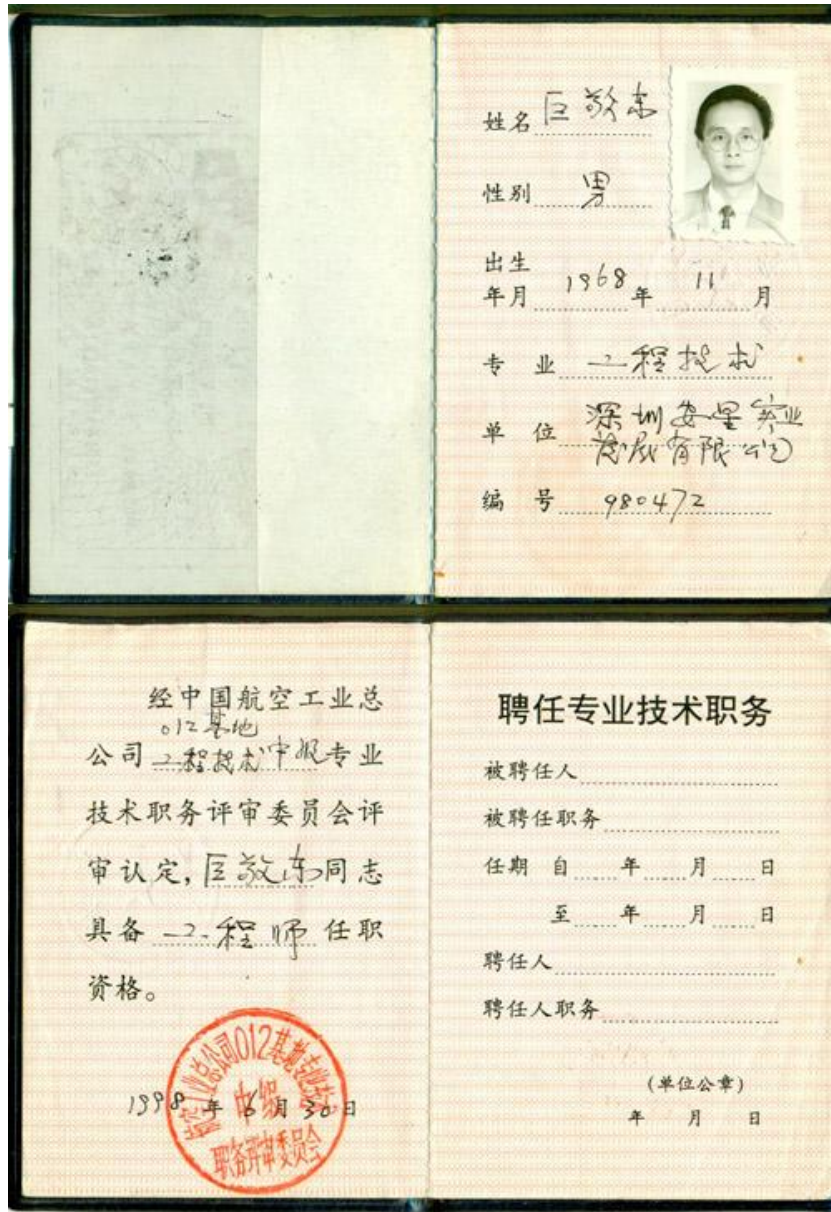 姓名 巨敬东
性别 男
出生
年月 1968年 11月
专业 工程技术
单位 深圳安星实业
发展有限公司
编号 980472
经中国航空工业总
012基地
公司工程技术中级专业
技术职务评审委员会评
审认定,巨敬东同志
具备 工程师 任职
资格。
航空工业总公司012基地专业技术
中级
职务评审委员会
1998年6月30日
聘任专业技术职务
被聘任人
被聘任职务
任期 自 年 月 日
至 年 月 日
聘任人
聘任人职务
(单位公章)
年 月 日